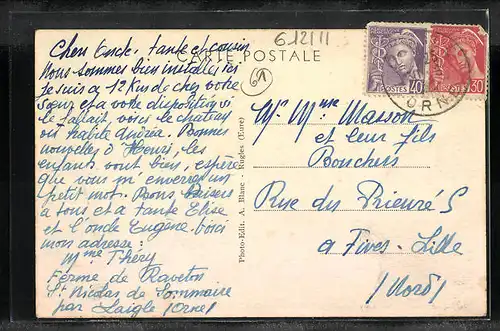 6121 11
Cher Oncle, tante et cousin
CARTE POSTALE
61
Nous sommes bien installés ici
je suis a 12 Km de chez votre
Sœur et a votre disposition si
le fallait, voici le chateau
ou habite Andréa. Bonnes
nouvelles d'Henri, les
enfants vont bien, espère
que vous m'enverrez un
petit mot. Bons Baisers
a tous et a tante Elise
et l'oncle Eugène. Voici
mon adresse:
Mme Théry
Ferme de Raveton
St Nicolas de Sommaire
par Laigle (Orne)
Photo-Edit. A. Blanc - Rugles (Eure)
POSTES 40
POSTES 30
ORN
Mr Mme Masson
et leur fils
Bouchers
Rue du Prieuré 5
a Fives-Lille
(Nord)